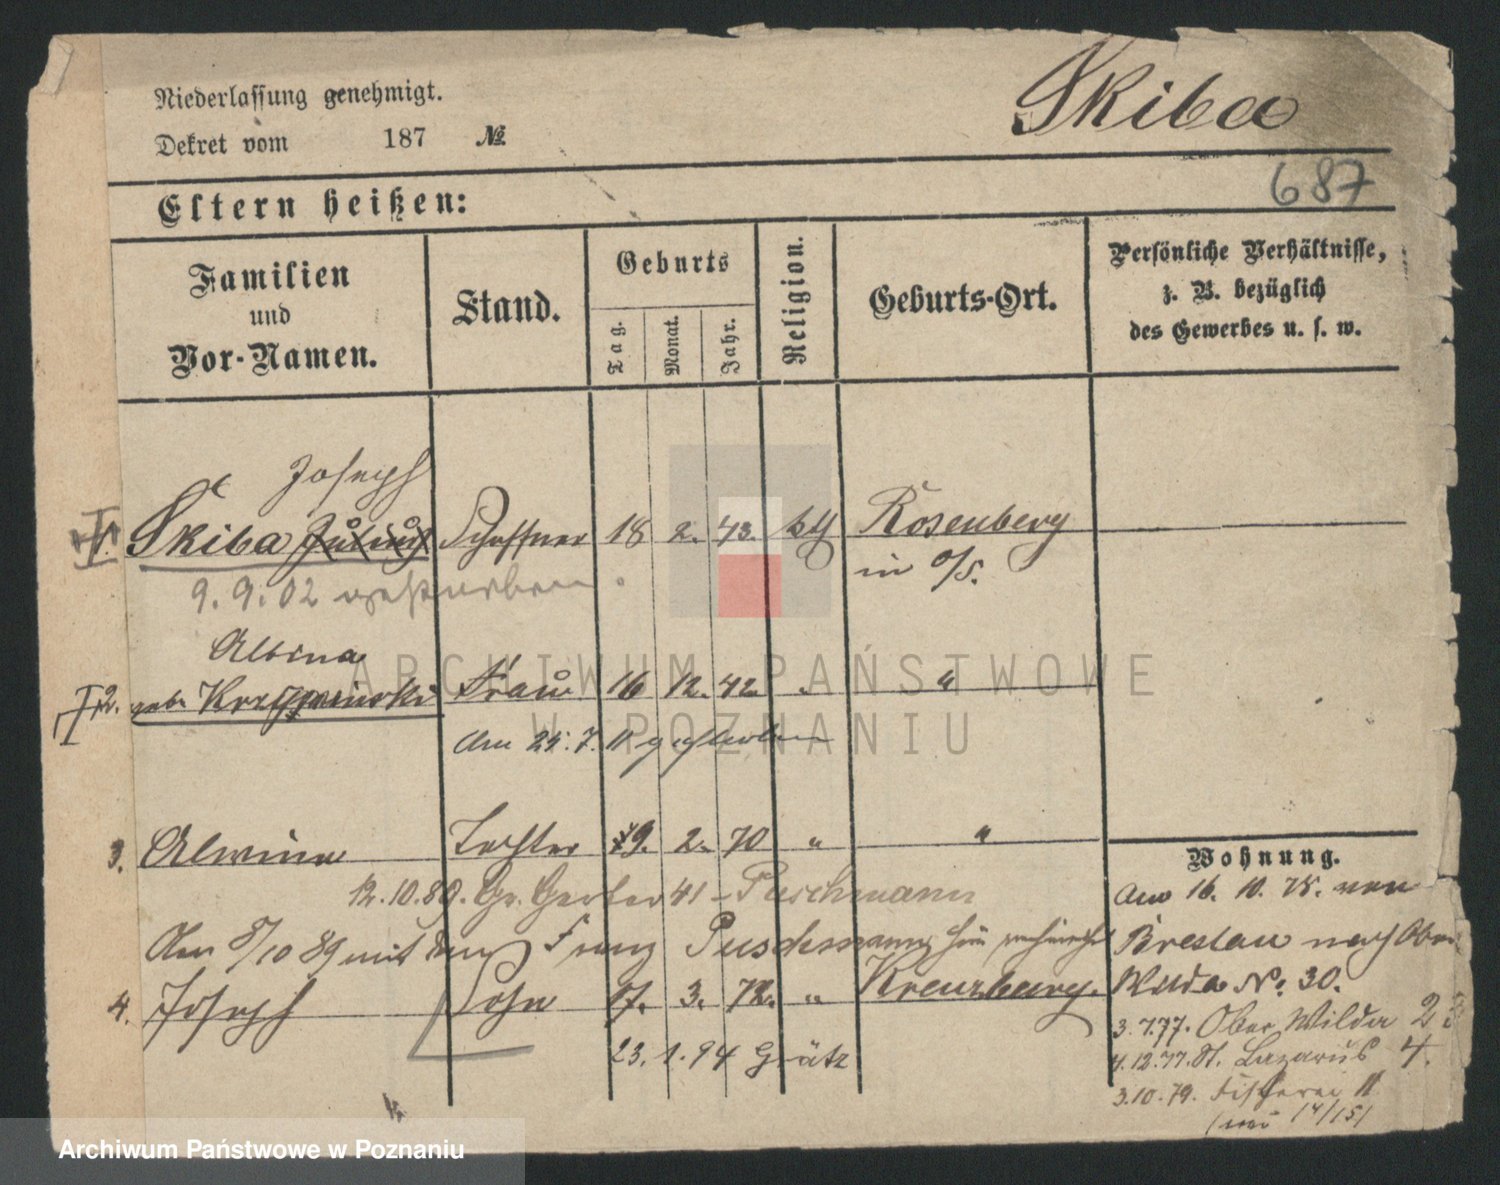 Skiba
Niederlassung genehmigt.
Dekret vom 187 №
687
Eltern heißen:
Familien und Vor-Namen.
Stand.
Geburts
Tag.
Monat.
Jahr.
Religion.
Geburts-Ort.
Persönliche Verhältnisse, z. B. bezüglich des Gewerbes u. s. w.
Joseph
1. Skiba Schaffner 18 2. 43. kth Rosenberg
in O/S.
9. 9. 02 verstorben.
Albina
2. geb. Frau 16 12. 42. " "
Am 25. 7. 11 gestorben
3. Alwine Tochter 19. 2. 70 " "
Wohnung.
12. 10. 89. Gr. Gerber 41 - Puschmann
Am 16. 10. 75. von
Den 8/10 89 mit dem Franz Puschmann
Breslau nach Ober
4. Joseph Sohn 17. 3. 72. " Kreuzburg.
Wilda No. 30.
3. 7. 77. Ober Wilda 23
23. 1. 94 Grätz
4. 12. 77. St. Lazarus 4.
3. 10. 79. Fischerei 11
14/15
ARCHIWUM PAŃSTWOWE
W POZNANIU
Archiwum Państwowe w Poznaniu